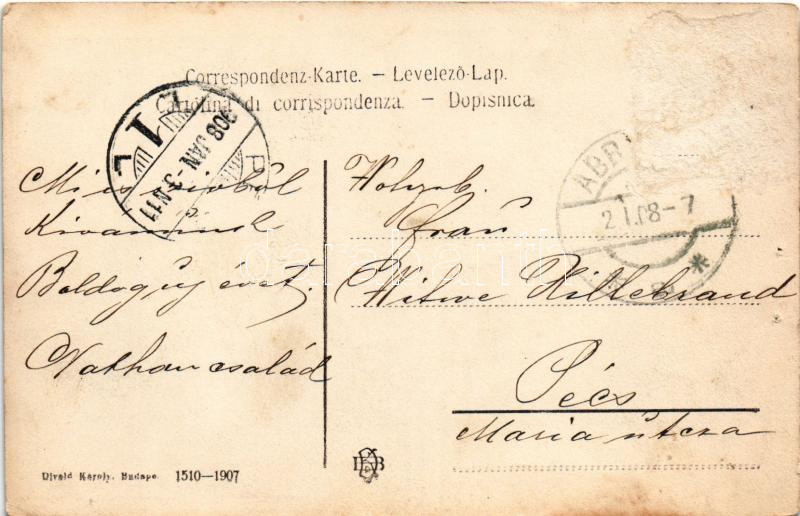 Correspondenz-Karte. – Levelező-Lap.
Cartolina di corrispondenza. – Dopisnica.
908 JAN -3 N11
ABR
2.1.08-7
Mi is szivből
Kivánunk
Boldog uj évet.
Nathan család
Frau
Witwe Hillebrand
Pécs
Maria útcza
Divald Károly, Budape
1510—1907